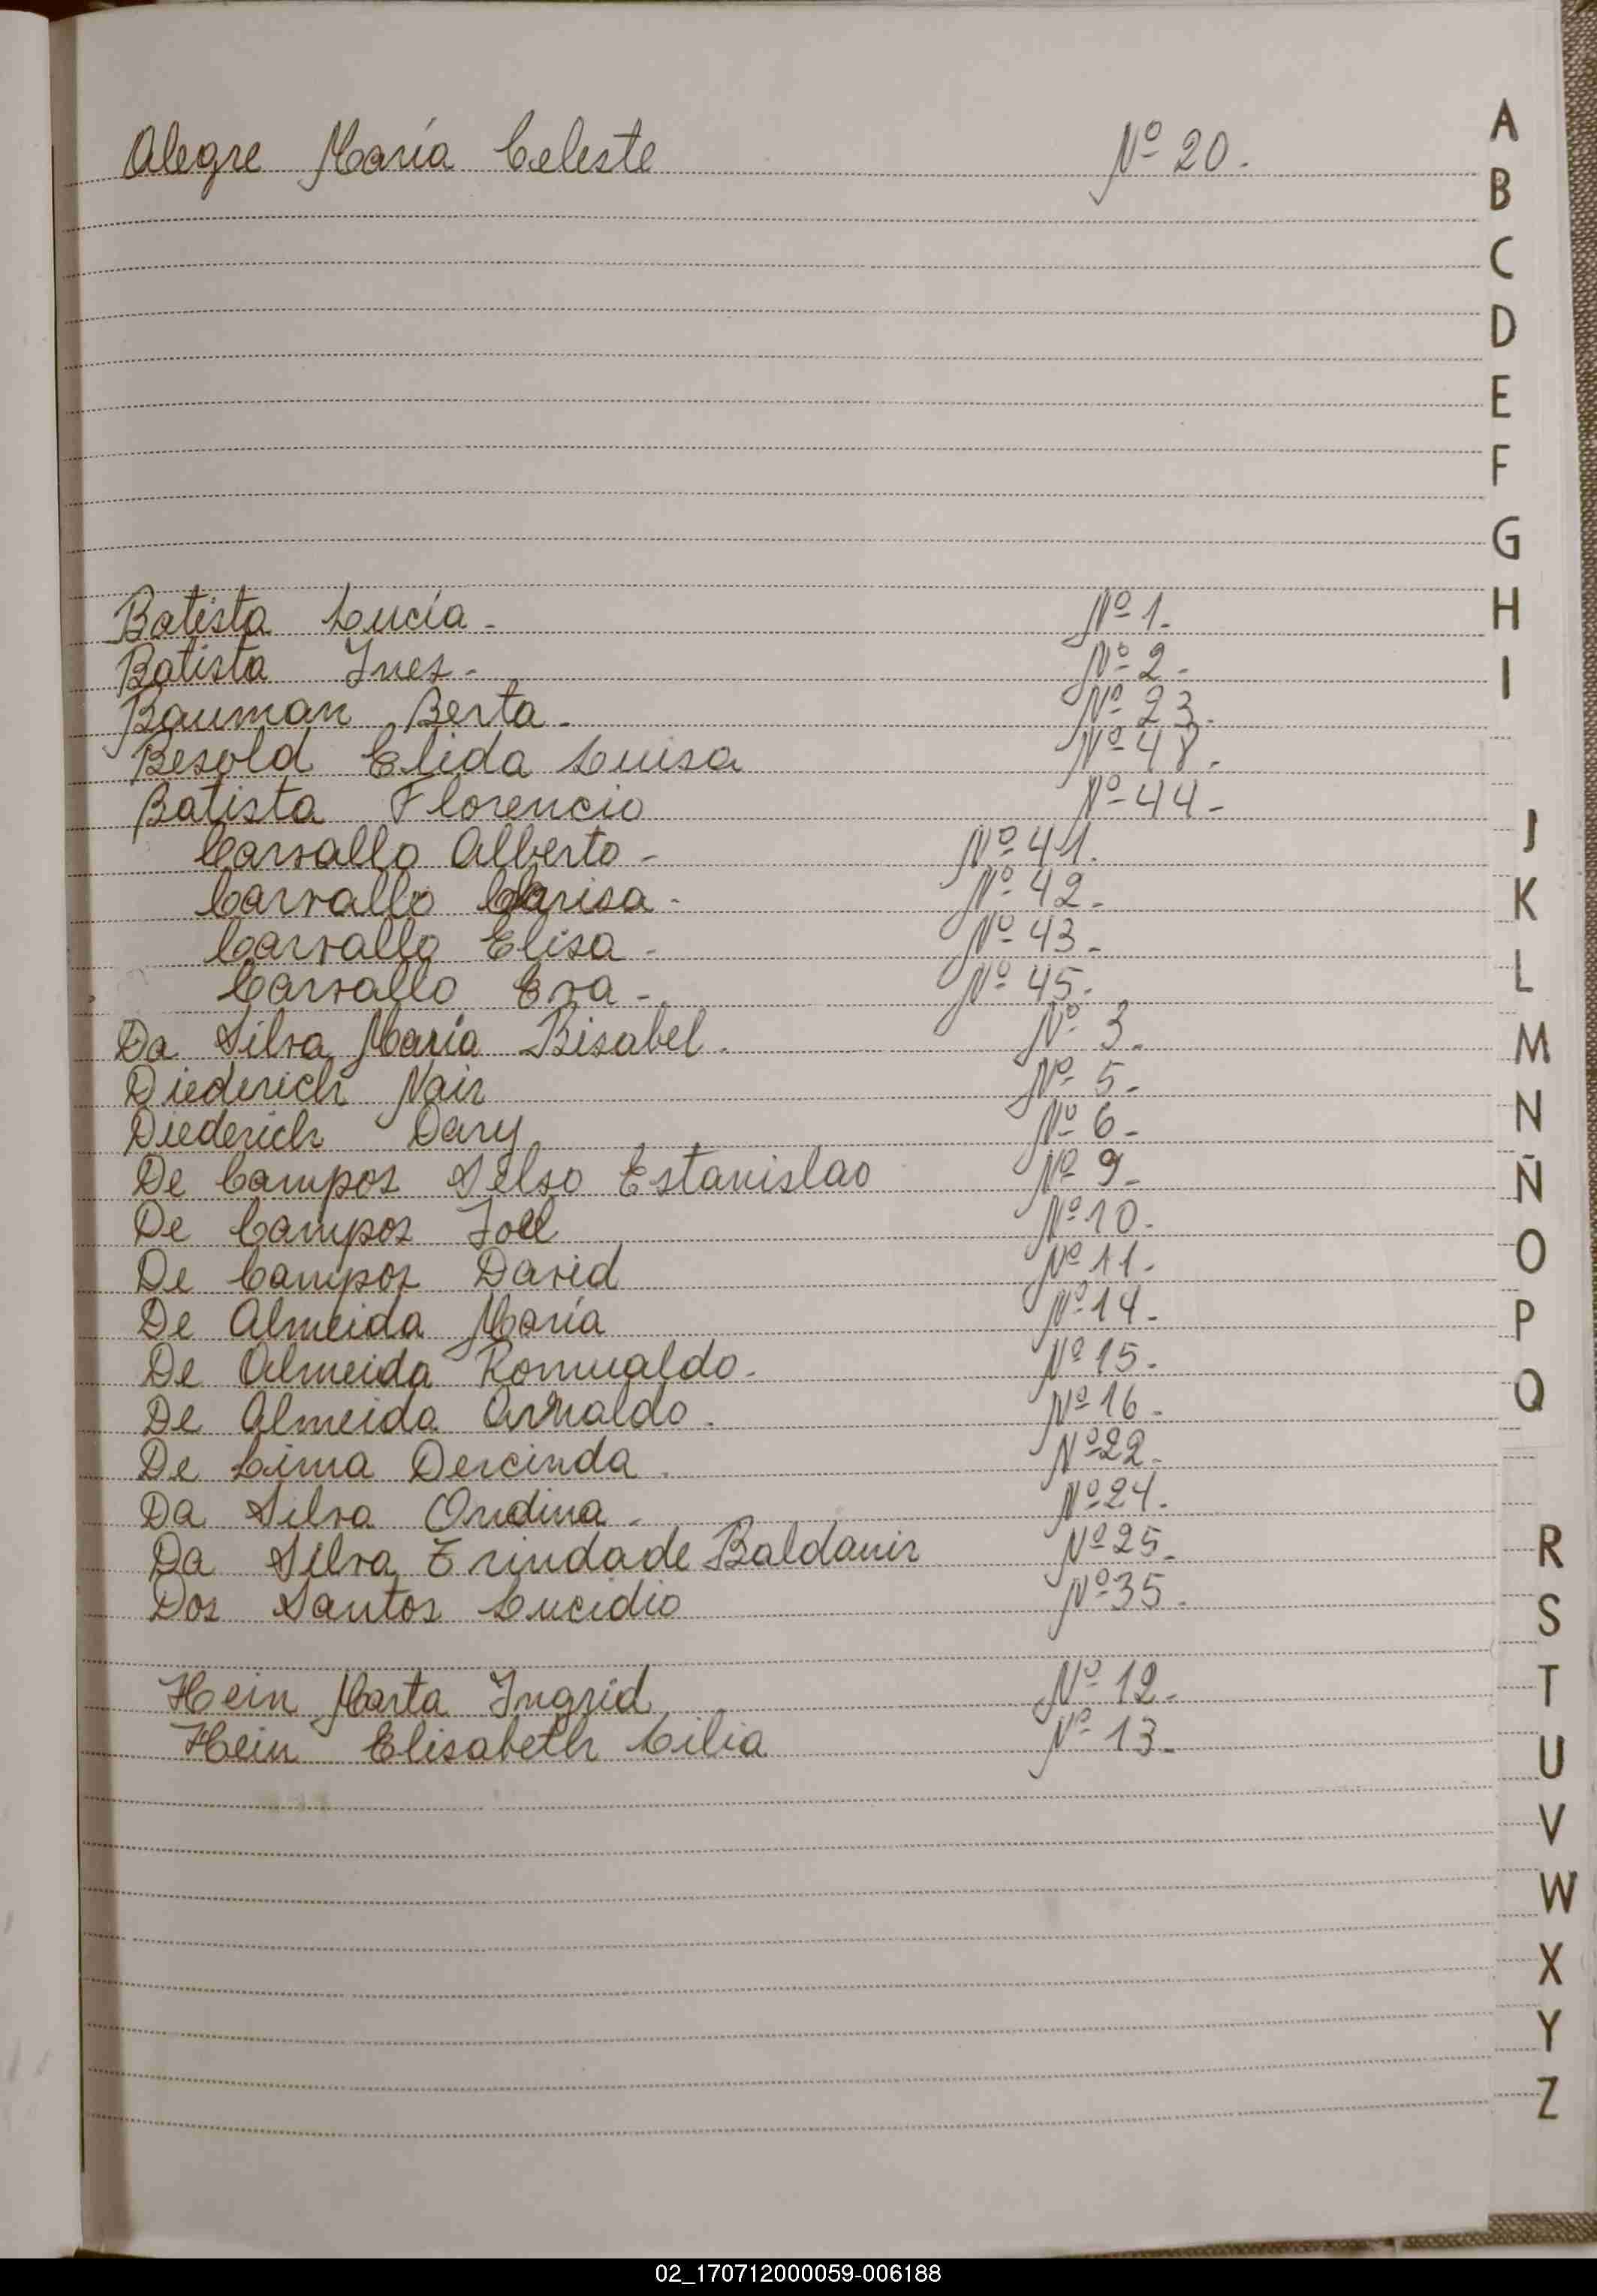 Alegre María Celeste Nº 20.
Batista Lucía - Nº 1.
Batista Ines - Nº 2 -
Bauman Berta - Nº 23.
Besold Elida Luisa Nº 48.
Batista Florencio Nº 44 -
Carvallo Alberto - Nº 41.
Carvallo Clarisa - Nº 42 -
Carvallo Elisa - Nº 43 -
Carvallo Eva - Nº 45 -
Da Silva María Bisabel. Nº 3 -
Diederich Nair Nº 5 -
Diederich Dary Nº 6 -
De Campos Selso Estanislao Nº 9 -
De Campos Joel Nº 10 -
De Campos David Nº 11 -
De Almeida María Nº 14 -
De Almeida Romualdo - Nº 15 -
De Almeida Arnaldo. Nº 16 -
De Lima Dercinda. Nº 22.
Da Silva Ondina - Nº 24.
Da Silva Trindade Baldanir Nº 25 -
Dos Santos Lucidio Nº 35.
Hein Marta Ingrid Nº 12 -
Hein Elisabeth Cilia Nº 13 -
A
B
C
D
E
F
G
H
I
J
K
L
M
N
Ñ
O
P
Q
R
S
T
U
V
W
X
Y
Z
02_170712000059-006188